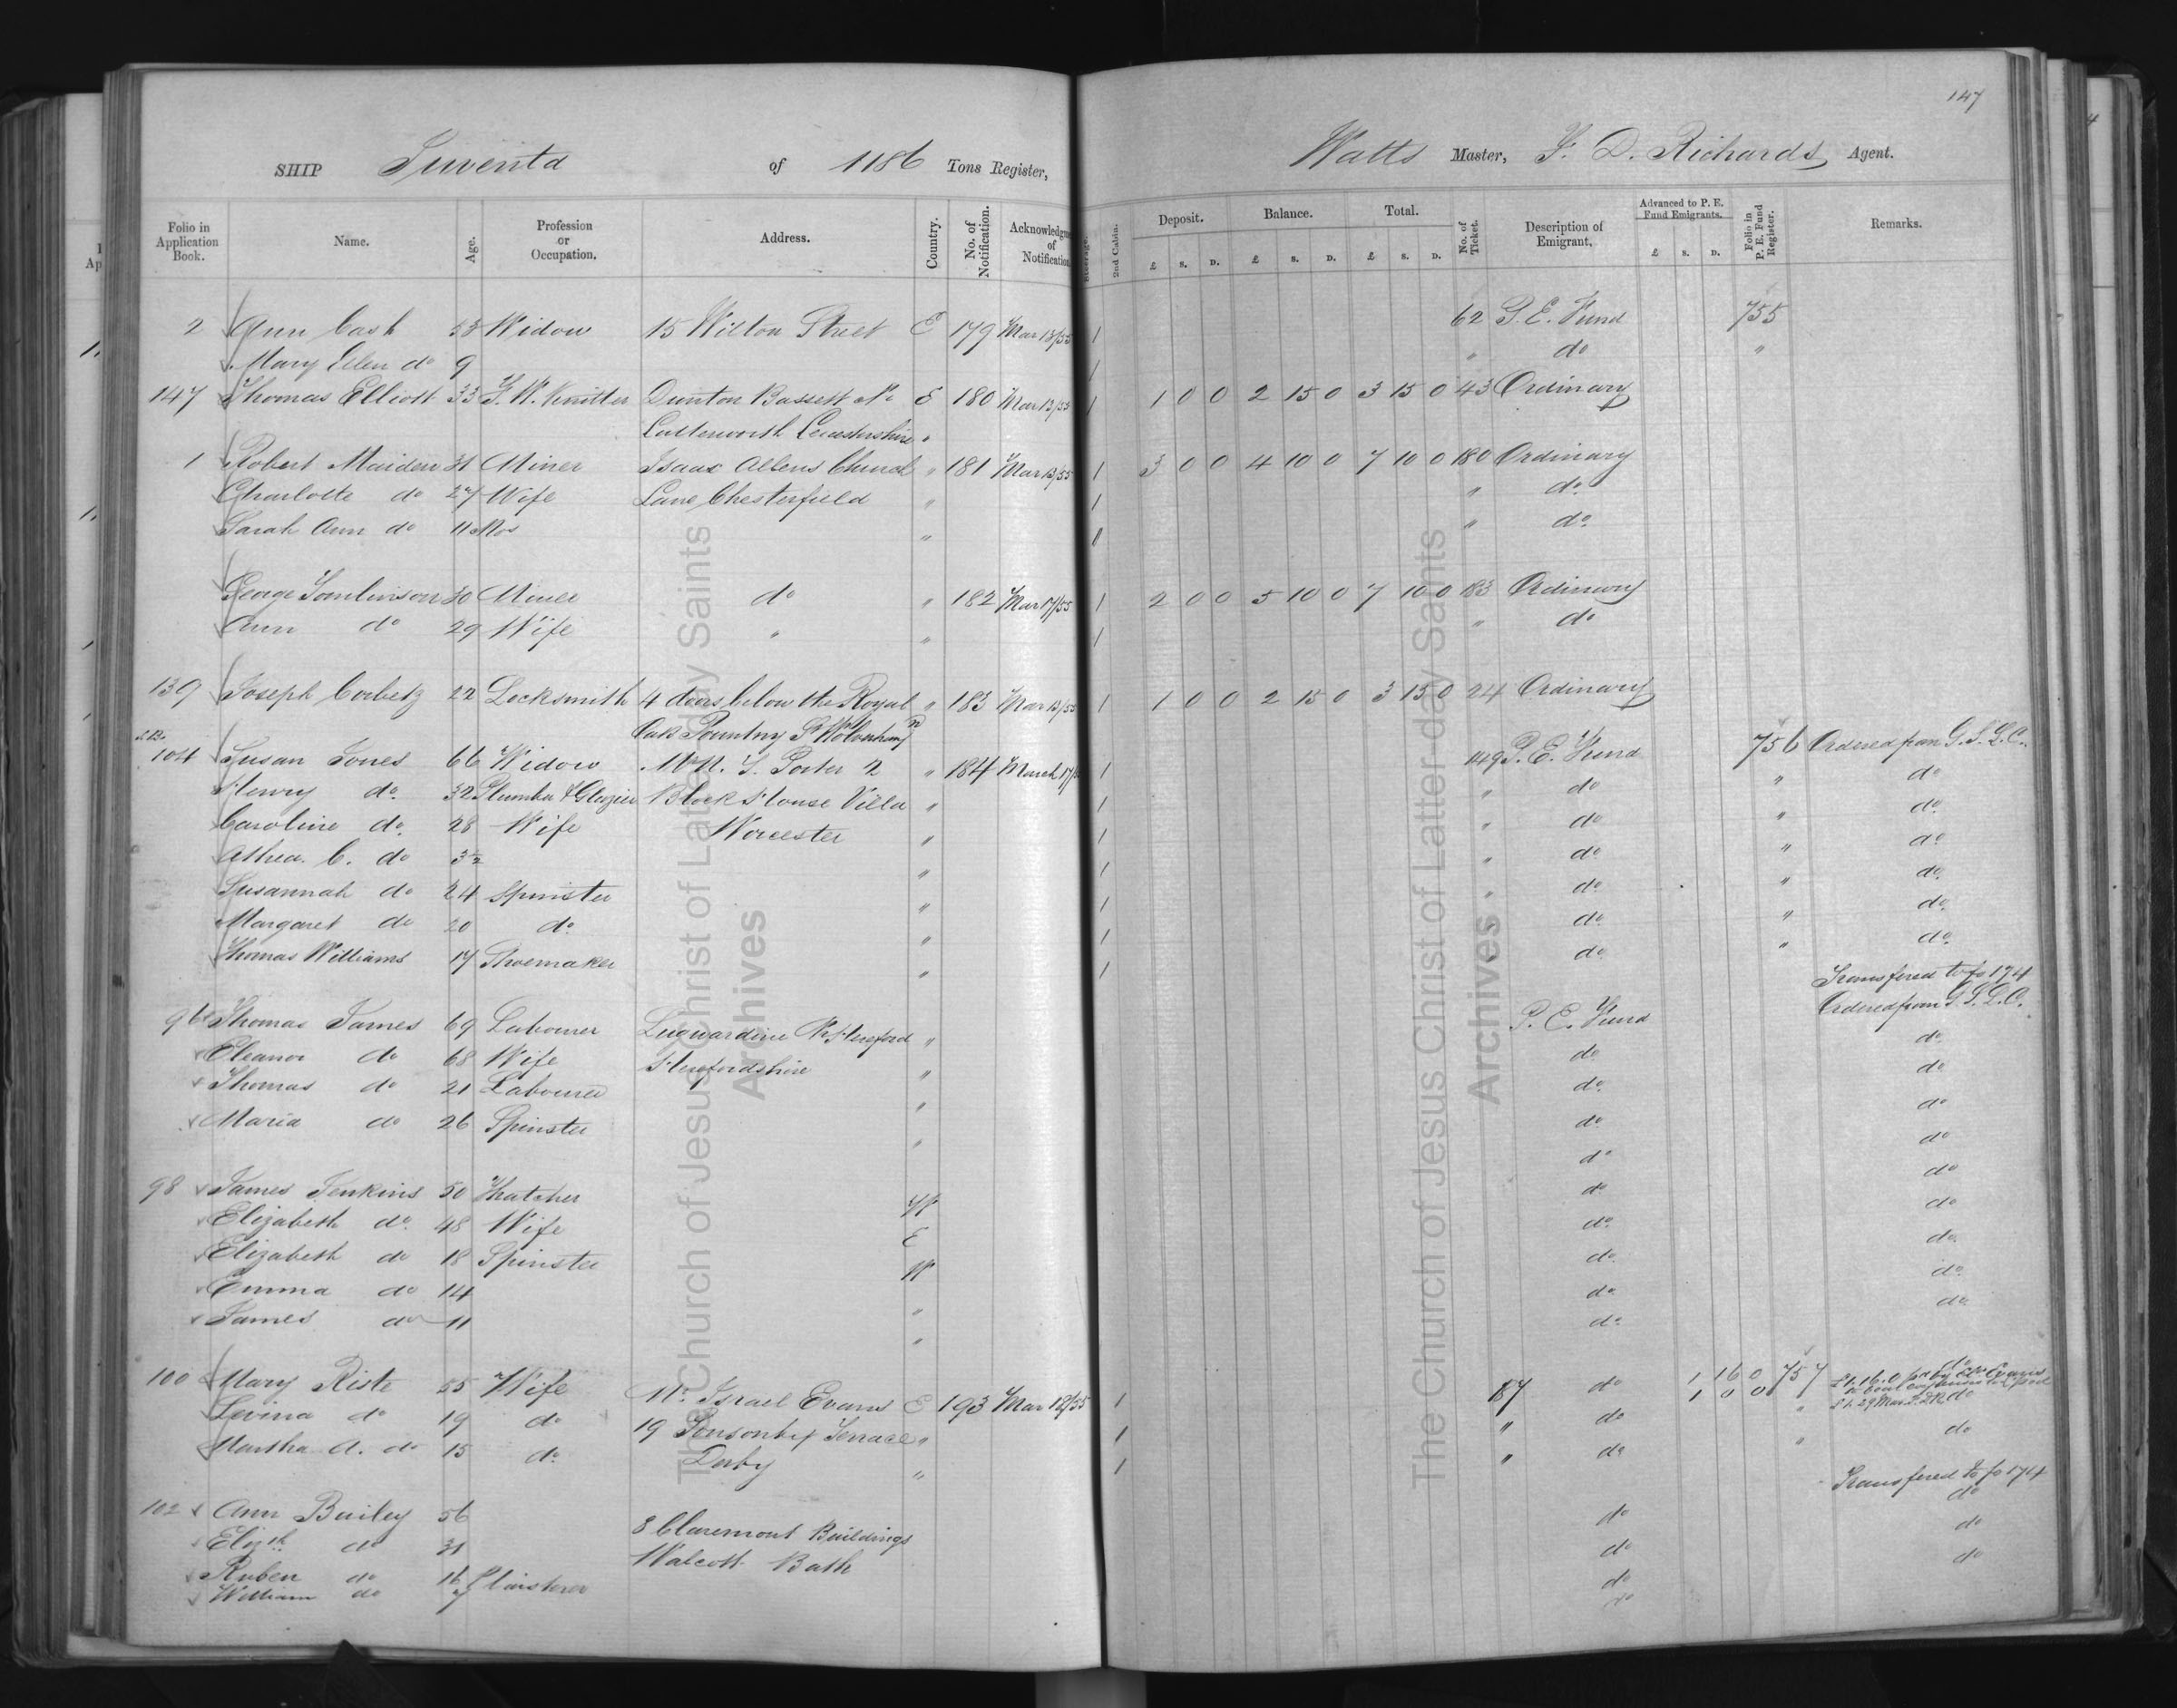 147
SHIP Juventa of 1186 Tons Register, Watts Master, F. D. Richards Agent.
Folio in Application Book. Name. Age. Profession or Occupation. Address. Country. No. of Notification. Acknowledgm of Notification Steerage. 2nd Cabin. Deposit. £ S. D. Balance. £ S. D. Total. £ S. D. No. of Ticket. Description of Emigrant. Advanced to P. E. Fund Emigrants. £ S. D. Folio in P. E. Fund Register. Remarks.
2 Ann Cash 53 Widow 15 Wilton Street E 179 Mar 13/55 1 62 P. E. Fund 755
Mary Ellen do 9 1 " do "
147 Thomas Elliott 33 F. W. Knitter Dunton Bassett Nr E 180 Mar 13/55 1 1 0 0 2 15 0 3 15 0 43 Ordinary
Lutterworth Leicestershire "
1 Robert Maiden 31 Miner Isaac Allens Church " 181 Mar 13/55 1 3 0 0 4 10 0 7 10 0 180 Ordinary
Charlotte do 27 Wife Lane Chesterfield " 1 " do
Sarah Ann do 11 Mos " " do
George Tomlinson 30 Miner do " 182 Mar 17/55 1 2 0 0 5 10 0 7 10 0 183 Ordinary
Ann do 29 Wife " " 1 " do
139 Joseph Corbett 22 Locksmith 4 doors below the Royal " 183 Mar 13/55 1 1 0 0 2 15 0 3 15 0 24 Ordinary
Oak Pountny St Wolverhampn
104 Susan Jones 66 Widow Mr. T. Porter 2 " 184 March 17/ 1 149 P. E. Fund 756 Ordered from G. S. L. C.
Henry do 32 Plumber & Glazier Block House Villa " 1 " do " do
Caroline do 28 Wife Worcester " 1 " do " do
Athea. C. do 3½ " 1 " do " do
Susannah do 24 Spinster " 1 " do " do
Margaret do 20 do " 1 do " do
Thomas Williams 17 Shoemaker " 1 do " do
Transfered to fo 174
96 Thomas James 69 Labourer Lugwardine Nr Hereford " P. E. Fund Ordered from G. S. L. C.
Eleanor do 68 Wife Herefordshire " do do
Thomas do 21 Labourer " do do
Maria do 26 Spinster " do do
98 James Jenkins 50 Thatcher W do do
Elizabeth do 48 Wife E do do
Elizabeth do 18 Spinster W do do
Emma do 14 " do do
James do 11 " do do
100 Mary Riste 55 Wife Mr. Israel Evans E 193 Mar 12/55 1 87 do 1 16 0 757 do
1 0 0 £1.16.0 pd by Evans
Levina do 19 do 19 Ponsonby Terrace " 1 " do " do
Martha A. do 15 do Derby " 1 " do " do
Transfered to fo 174
102 Ann Bailey 56 8 Claremont Buildings do do
Elizth do 31 Walcott Bath do do
Ruben do 16 Plaisterer do do
William do 7 do
The Church of Jesus Christ of Latter-day Saints
Archives
The Church of Jesus Christ of Latter-day Saints
Archives